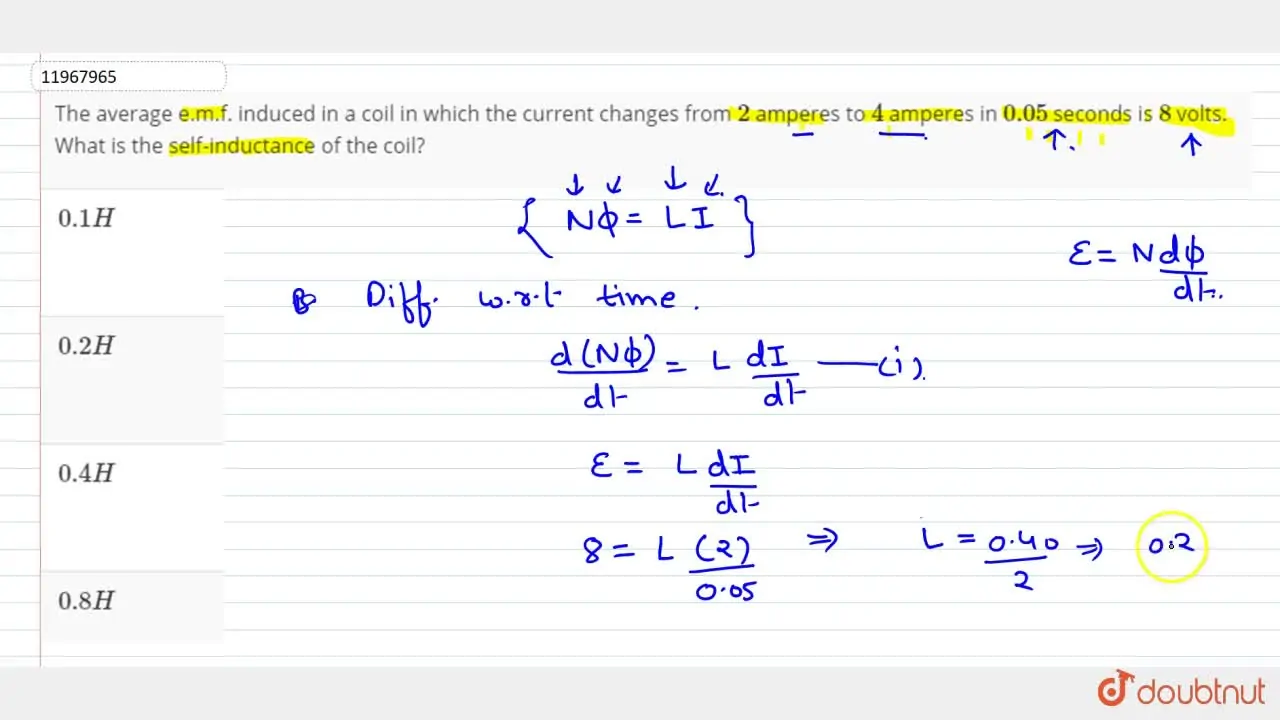 11967965
The average e.m.f. induced in a coil in which the current changes from 2 amperes to 4 amperes in 0.05 seconds is 8 volts.
What is the self-inductance of the coil?
{ Nϕ = LI }
0.1H
ε = N dϕ/dt.
Diff. w.r.t time.
0.2H
d(Nϕ)/dt = L dI/dt —(i).
0.4H
ε = L dI/dt
8 = L (2)/0.05 ⇒ L = 0.40/2 ⇒ 0.2
0.8H
doubtnut